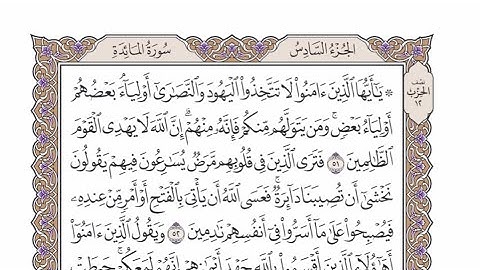 الجزء السادس
سورة المائدة
نصف
الحزب
١٢
۞ يَٰٓأَيُّهَا ٱلَّذِينَ ءَامَنُوا۟ لَا تَتَّخِذُوا۟ ٱلْيَهُودَ وَٱلنَّصَٰرَىٰٓ أَوْلِيَآءَۘ بَعْضُهُمْ
أَوْلِيَآءُ بَعْضٍۚ وَمَن يَتَوَلَّهُم مِّنكُمْ فَإِنَّهُۥ مِنْهُمْۗ إِنَّ ٱللَّهَ لَا يَهْدِى ٱلْقَوْمَ
ٱلظَّٰلِمِينَ ٥١ فَتَرَى ٱلَّذِينَ فِى قُلُوبِهِم مَّرَضٌ يُسَٰرِعُونَ فِيهِمْ يَقُولُونَ
نَخْشَىٰٓ أَن تُصِيبَنَا دَآئِرَةٌۚ فَعَسَى ٱللَّهُ أَن يَأْتِىَ بِٱلْفَتْحِ أَوْ أَمْرٍ مِّنْ عِندِهِۦ
فَيُصْبِحُوا۟ عَلَىٰ مَآ أَسَرُّوا۟ فِىٓ أَنفُسِهِمْ نَٰدِمِينَ ٥٢ وَيَقُولُ ٱلَّذِينَ ءَامَنُوٓا۟
أَهَٰٓؤُلَآءِ ٱلَّذِينَ أَقْسَمُوا۟ بِٱللَّهِ جَهْدَ أَيْمَٰنِهِمْۙ إِنَّهُمْ لَمَعَكُمْۚ حَبِطَتْ